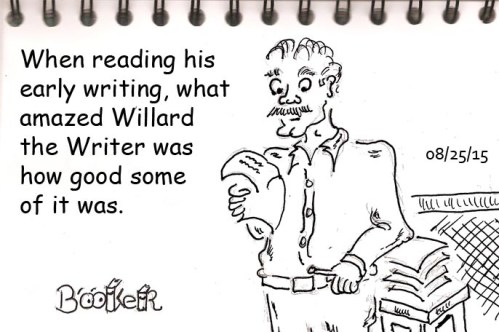 When reading his
early writing, what
amazed Willard
the Writer was
how good some
of it was.
08/25/15
Booker